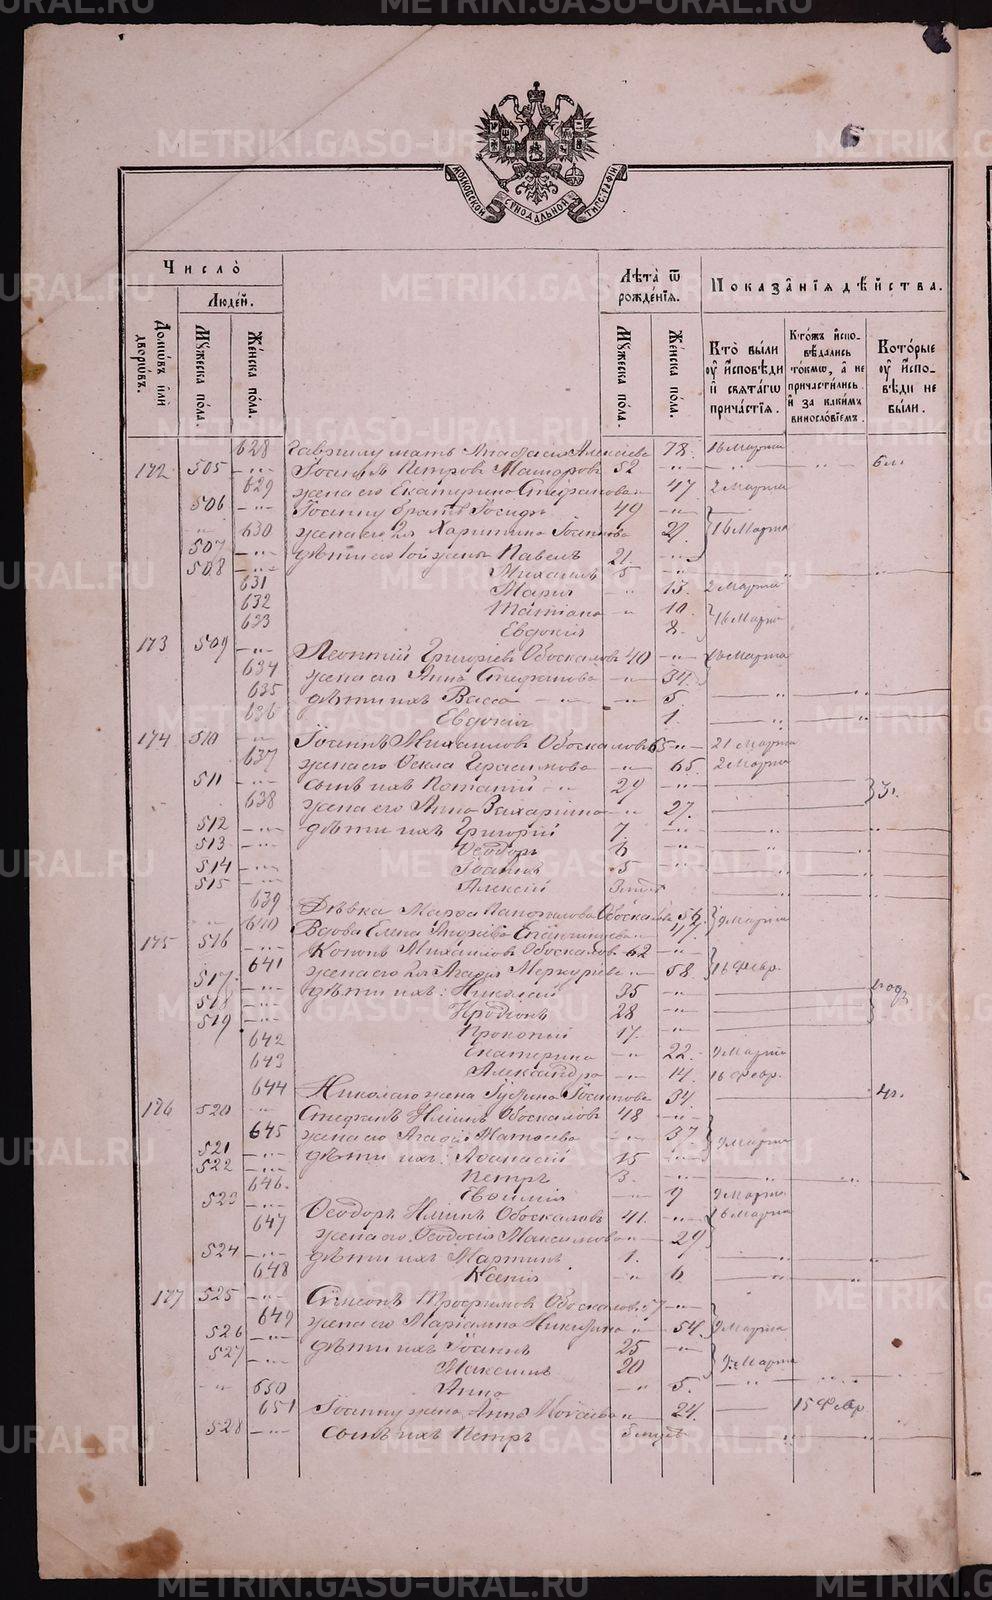 METRIKI.GASO-URAL.RU
6
МОСКОВСКОЙ СѴНОДАЛЬНОЙ ТИПОГРАФІИ
Число̀
Люде́й.
Лѣта̀ ѿ рожде́нїѧ.
Показа́нїѧ дѣ́йства.
Домѡ́въ и҆лѝ дворѡ́въ.
Мꙋ́жеска по́ла.
Же́нска по́ла.
Мꙋ́жеска по́ла.
Же́нска по́ла.
Кто̀ бы́ли ᲂу҆ и҆́сповѣди и҆ свѧта́гѡ прича́стїѧ.
Кто́жъ и҆спо- вѣ́дались то́кмѡ, а҆ не причасти́лись. и҆ за каки́мъ виносло́вїемъ.
Кото́рые ᲂу҆ и҆́спо- вѣди не бы́ли.
628 Гаврилу мать Алексѣева 78. 16 Марта
172 505 Іоаннъ Петровъ 52
629 жена его Екатерина Стефанова 47 2 Марта
506 Іоанну братъ Іосифъ 49
630 жена его 2я Харитина Іоаннова 29. 16 Марта
507 дѣти его 1ой жены Павелъ 21.
508 Михаилъ 5
631 Марія 13. 2 Марта
632 Татіана 10
633 Евдокія 8. 16 Марта
173 509 Леонтій Григоріевъ Обоскаловъ 40 16 Марта
634 жена его Анна Стефанова 34.
635 дѣти ихъ Васса 5
636 Евдокія 1.
174 510 Іоаннъ Михаиловъ Обоскаловъ 65 21 Марта
637 жена его Ѳекла Герасимова 65. 2 Марта
511 сынъ ихъ Потапій 29
638 жена его Анна Захарьина 27. 3 г.
512 дѣти ихъ Григорій 7.
513 Ѳеодоръ 6
514 Іоаннъ 5
515 Алексій
639 Дѣвка Марѳа Обоскалова 56
640 Вдова Елена 9 Марта
175 516 Кононъ Михаиловъ Обоскаловъ 62
641 жена его 2я Агаѳія Меркурьева 58. 16 Февр.
517 дѣти ихъ: Николай 35
518 Иродіонъ 28 1 годъ
519 Прокопій 17.
642 Екатерина 22. 9 Марта
643 Александра 14. 16 Февр.
644 Николаю жена Іоаннова 34. 4 г.
176 520 Стефанъ Ильинъ Обоскаловъ 48
645 жена его Агаѳія Матѳеева 37 9 Марта
521 дѣти ихъ: Аѳанасій 15
522 Петръ 3.
646. Евѳимія 9 9 Марта
523 Ѳеодоръ Ильинъ Обоскаловъ 41. 16 Марта
647 жена его Ѳеодосія Максимова 29
524 дѣти ихъ Мартинъ 1.
648 Ксенія 6
177 525 Сѵмеонъ Трофимовъ Обоскаловъ 57
649 жена его Маріамна Никитина 54. 9 Марта
526 дѣти ихъ Іоаннъ 25
527 Максимъ 20 9 Марта
650 Анна 5.
651 Іоанну жена Анна 24. 15 Февр
528 сынъ ихъ Петръ